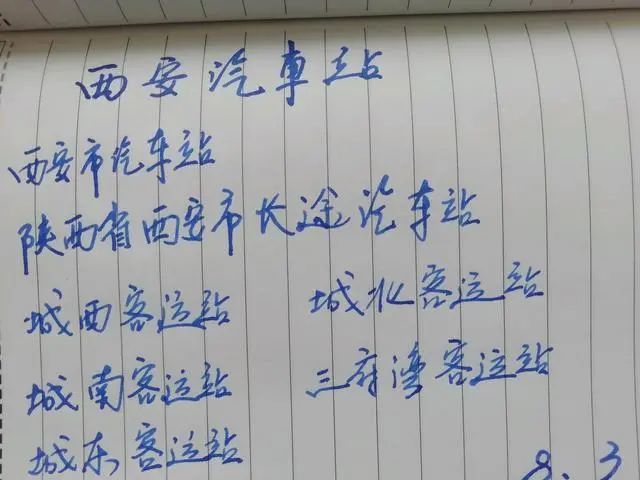 西安汽車站
西安市汽车站
陕西省西安市长途汽车站
城西客运站 城北客运站
城南客运站 三府湾客运站
城东客运站
8.3